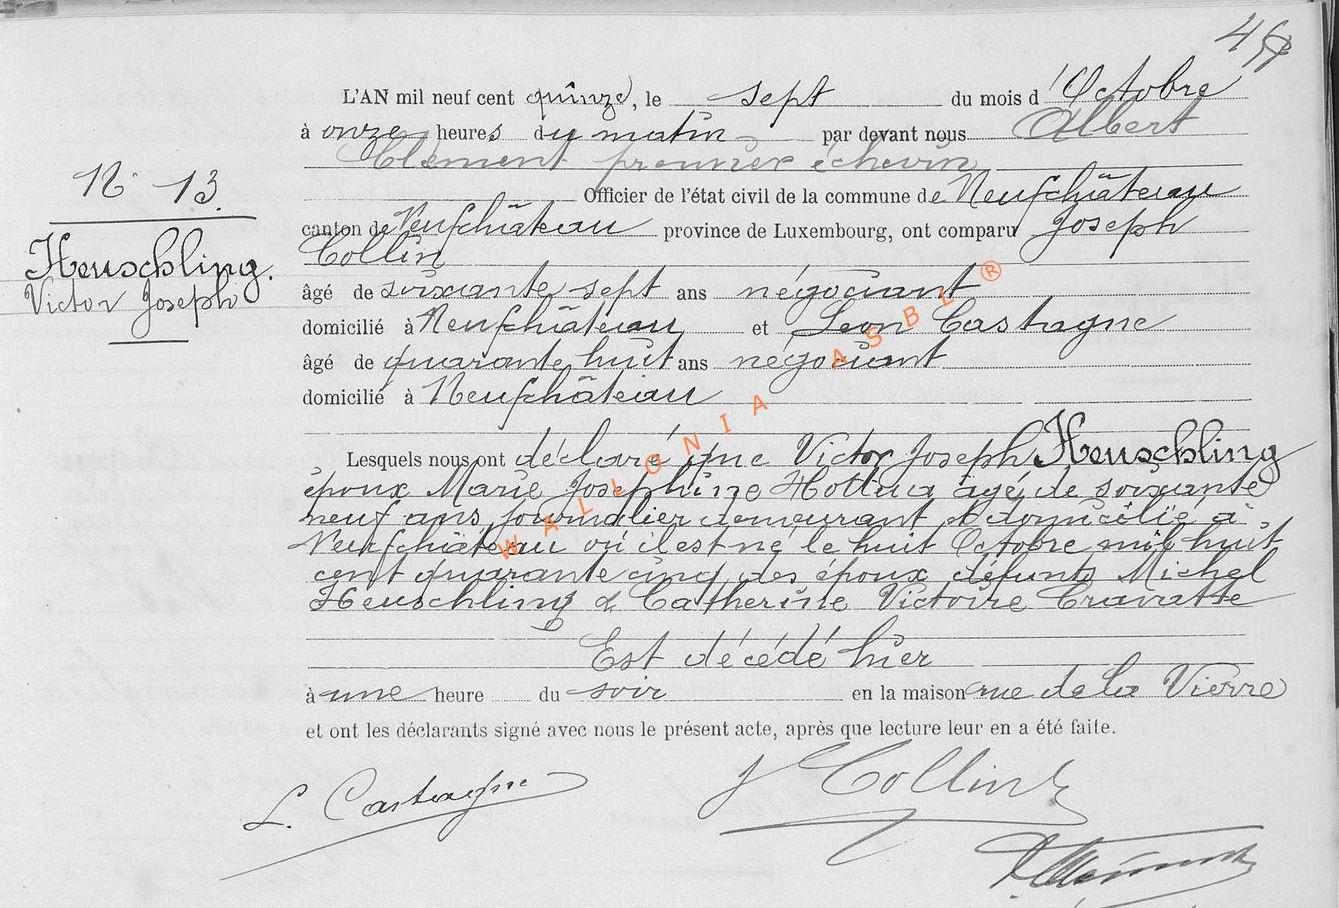 L'AN mil neuf cent quinze, le sept du mois d'Octobre
à onze heures du matin par devant nous Albert
Clément premier échevin
Officier de l'état civil de la commune de Neufchâteau
canton de Neufchâteau province de Luxembourg, ont comparu Joseph
Collin
âgé de soixante sept ans négociant
domicilié à Neufchâteau et Léon Castagne
âgé de quarante huit ans négociant
domicilié à Neufchâteau
N° 13.
Heuschling.
Victor Joseph
Lesquels nous ont déclaré que Victor Joseph Heuschling
époux Marie Joséphine Hottua âgé de soixante
neuf ans, journalier demeurant & domicilié à
Neufchâteau où il est né le huit Octobre mil huit
cent quarante cinq, des époux défunts Michel
Heuschling & Catherine Victoire Cravatte
Est décédé hier
à une heure du soir en la maison rue de la Vierre
et ont les déclarants signé avec nous le présent acte, après que lecture leur en a été faite.
L. Castagne J Collin
WALLONIA ASBL ®